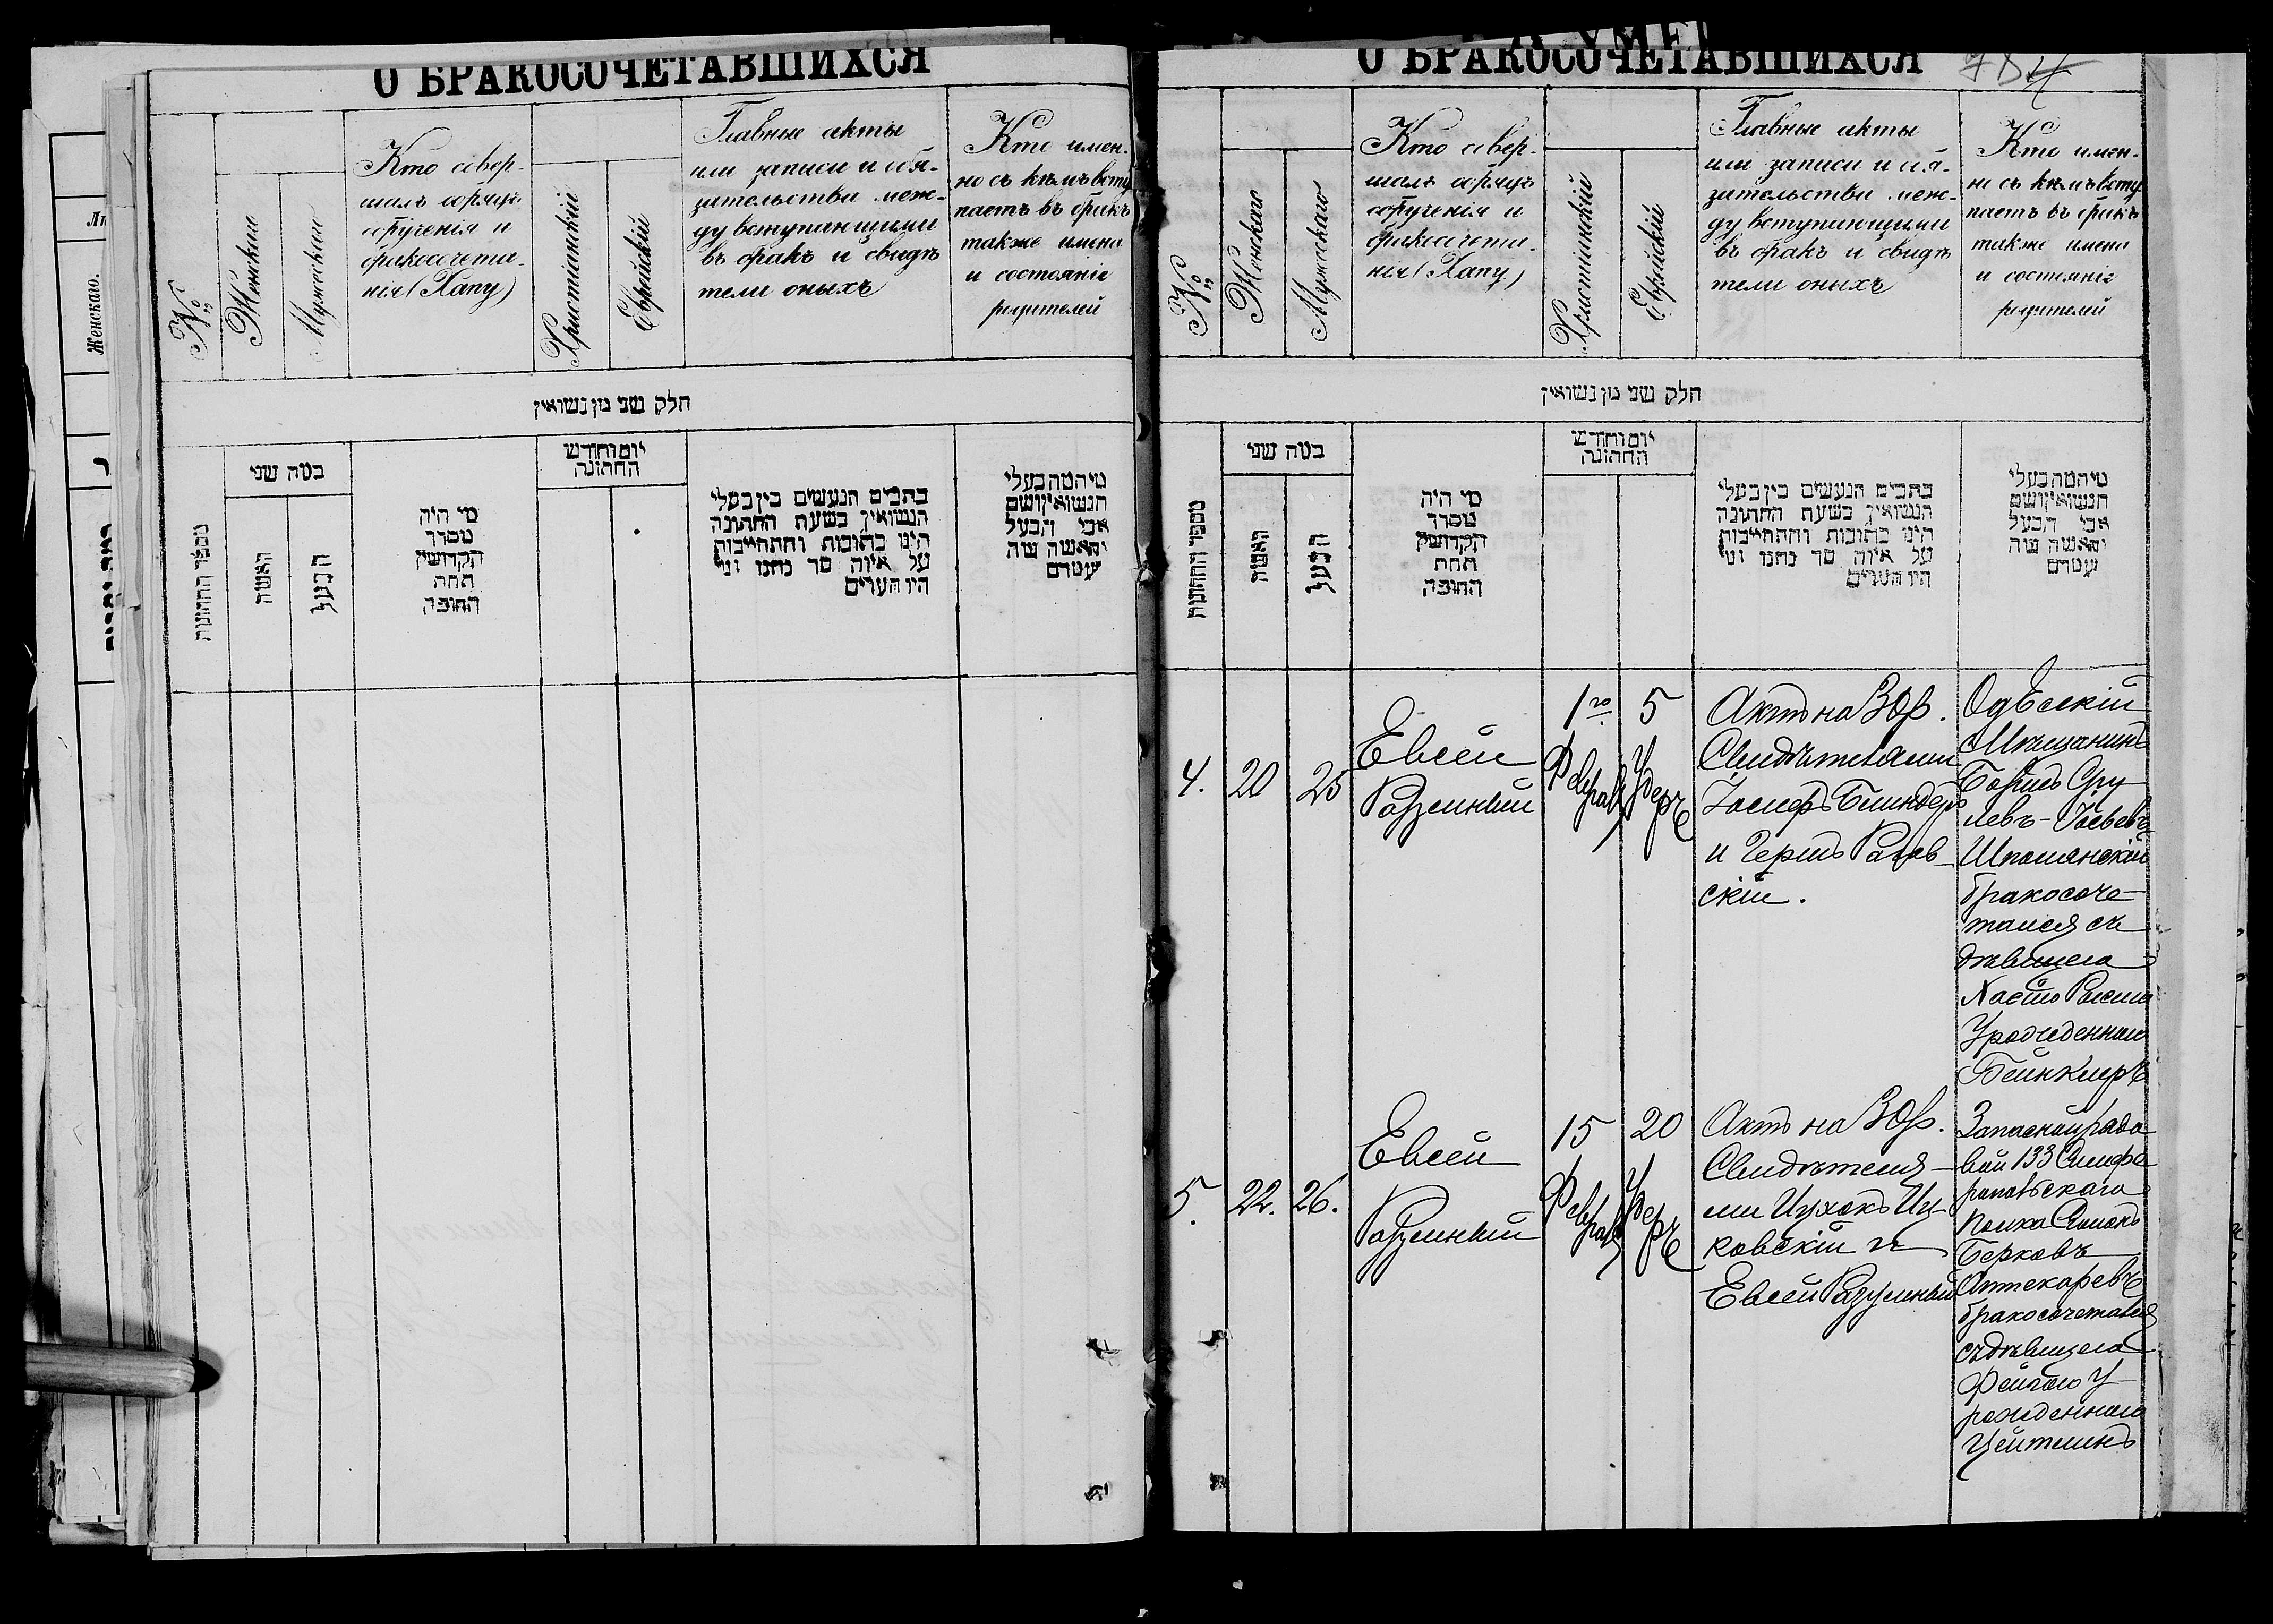 О БРАКОСОЧЕТАВШИХСЯ
№
Женскаго
Мужескаго
Кто совер-
шалъ обрядъ
обрученія и
бракосочета-
нія (Хапу)
Христіанскій
Еврейскій
Главные акты
или записи и обя-
зательства меж-
ду вступающими
въ бракъ и свидѣ
тели оныхъ
Кто имен-
но съ кѣмъ всту
паетъ въ бракъ
также имена
и состояніе
родителей
חלק שני מן נשואין
מספר החתונות
כמה שני
האשה
הבעל
מי היה
מסדר
הקדושין
תחת
החופה
יום וחודש
החתונה
כתבים הנעשים בין בעלי
הנשואין בשעת החתונה
היינו כתובות והתחייבות
על איזה סך נתנו ומי
היו העדים
מי המה בעלי
הנשואין ושם
אבי הבעל
והאשה מה
מעמדם
Женскаго.
О БРАКОСОЧЕТАВШИХСЯ
№
Женскаго
Мужескаго
Кто совер-
шалъ обрядъ
обрученія и
бракосочета-
нія (Хапу)
Христіанскій
Еврейскій
Главные акты
или записи и обя-
зательства меж-
ду вступающими
въ бракъ и свидѣ
тели оныхъ
Кто имен-
но съ кѣмъ всту
паетъ въ бракъ
также имена
и состояніе
родителей
חלק שני מן נשואין
מספר החתונות
כמה שני
האשה
הבעל
מי היה
מסדר
הקדושין
תחת
החופה
יום וחודש
החתונה
כתבים הנעשים בין בעלי
הנשואין בשעת החתונה
היינו כתובות והתחייבות
על איזה סך נתנו ומי
היו העדים
מי המה בעלי
הנשואין ושם
אבי הבעל
והאשה מה
מעמדם
4. 20 25
Евсей
Разумный
1го
Февраля
5
Удеръ
Актъ на 30р.
Свидѣтелями
Іосифъ Блиндеръ
и Гершъ Рагов-
скій.
Одѣсскій
Мѣщанинъ
Борухъ Сру
левъ-Іосьевъ
Шполянскій
бракосоче-
тался съ
дѣвицею
Хаею
Урожденною
5. 22. 26.
Евсей
Разумный
15
Февраля
20
Удеръ
Актъ на 30р.
Свидѣтеля-
ми Ицхокъ Иц-
ковскій и
Евсей Разумный
Запасный рядо
вой 133 Симфе
ропольскаго
полка
Берковъ
Аптекаревъ
бракосочетался
съ дѣвицею
Фейгою У-
рожденною
Цейтлинъ